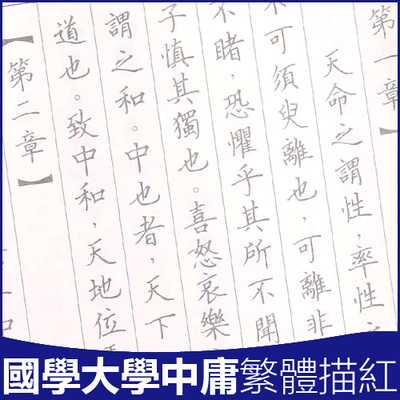 第一章】
天命之謂性，率性
可須臾離也，可離非
不睹，恐懼乎其所不聞
子慎其獨也。喜怒哀樂
謂之和。中也者，天下
道也。致中和，天地位
【第二章】
國學大學中庸繁體描紅